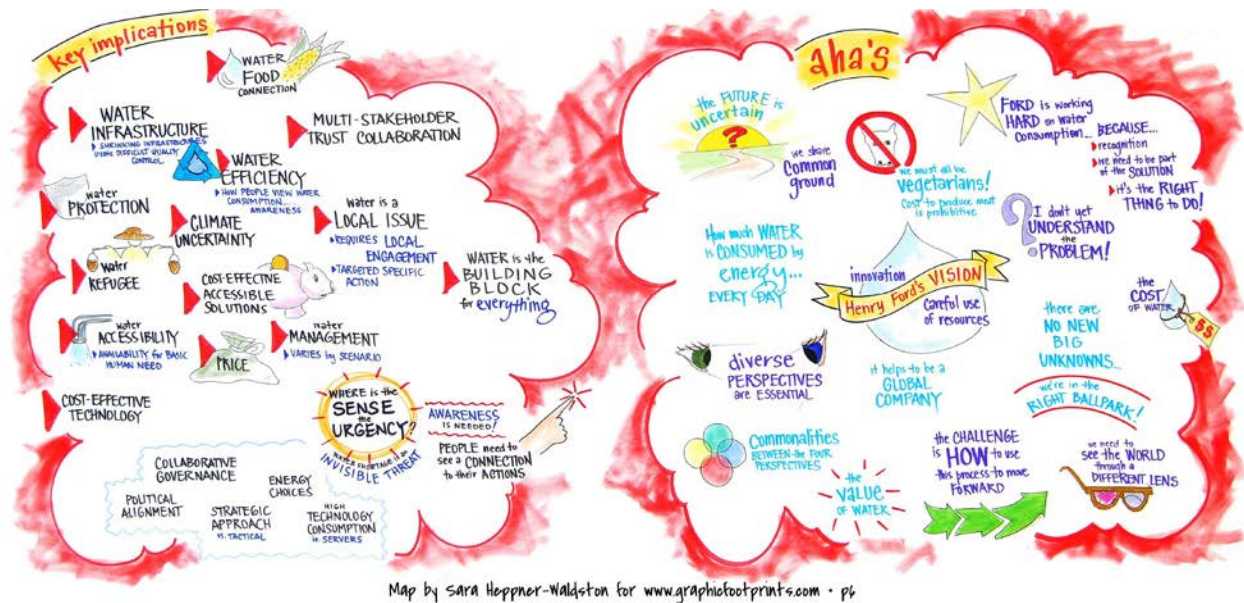 key implications
WATER
FOOD
CONNECTION
WATER
INFRASTRUCTURE
SHRINKING INFRASTRUCTURES
DIFFICULT QUALITY
CONTROL
MULTI-STAKEHOLDER
TRUST COLLABORATION
WATER
EFFICIENCY
HOW PEOPLE VIEW WATER
CONSUMPTION....
AWARENESS
water
PROTECTION
CLIMATE
UNCERTAINTY
water is a
LOCAL ISSUE
REQUIRES LOCAL
ENGAGEMENT
TARGETED SPECIFIC
ACTION
water
REFUGEE
COST-EFFECTIVE
ACCESSIBLE
SOLUTIONS
WATER is the
BUILDING
BLOCK
for everything
water
ACCESSIBILITY
AVAILABILITY for BASIC
HUMAN NEED
PRICE
water
MANAGEMENT
VARIES by SCENARIO
COST-EFFECTIVE
TECHNOLOGY
WHERE is the
SENSE
the
URGENCY?
WATER SHORTAGE is an
INVISIBLE THREAT
AWARENESS
IS NEEDED!
PEOPLE need to
see a CONNECTION
to their ACTIONS
COLLABORATIVE
GOVERNANCE
ENERGY
CHOICES
POLITICAL
ALIGNMENT
STRATEGIC
APPROACH
vs. TACTICAL
HIGH
TECHNOLOGY
CONSUMPTION
ie. SERVERS
aha's
the FUTURE is
uncertain
?
we share
Common
ground
we must all be
vegetarians!
Cost to produce meat
is prohibitive
FORD is working
HARD on water
consumption... BECAUSE...
recognition
we need to be part
of the SOLUTION
it's the RIGHT
THING to DO!
? I don't yet
UNDERSTAND
the
PROBLEM!
How much WATER
is CONSUMED by
energy...
EVERY DAY
innovation
Henry Ford's VISION
Careful use
of resources
the
COST
OF WATER
$$
there are
NO NEW
BIG
UNKNOWNS...
we're in the
RIGHT BALLPARK!
diverse
PERSPECTIVES
are ESSENTIAL
it helps to be a
GLOBAL
COMPANY
Commonalities
BETWEEN the FOUR
PERSPECTIVES
the
VALUE
OF WATER
the CHALLENGE
is HOW to use
this process to move
FORWARD
we need to
see the WORLD
through a
DIFFERENT LENS
Map by Sara Heppner-Waldston for www.graphicfootprints.com • p6